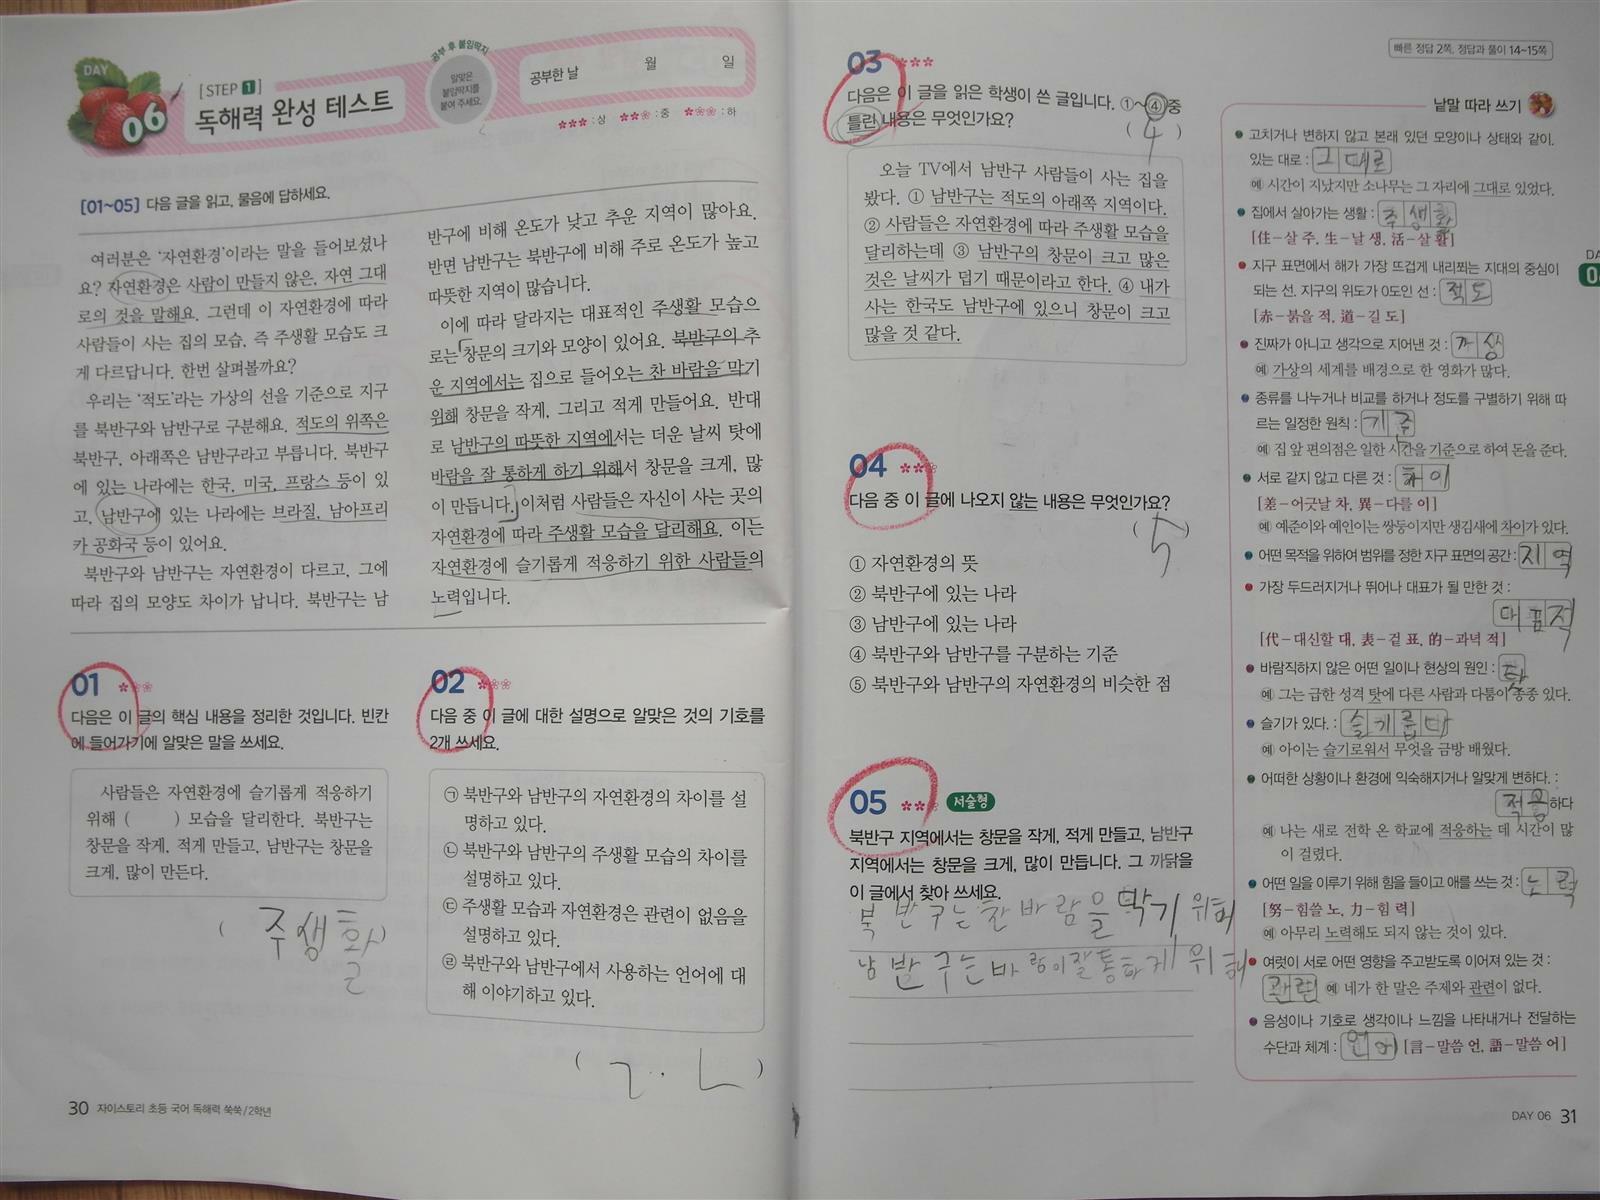 DAY
06
[STEP 1]
독해력 완성 테스트
공부 후 붙임딱지
알맞은
붙임딱지를
붙여 주세요.
공부한 날 월 일
: 상 : 중 : 하
[01~05] 다음 글을 읽고, 물음에 답하세요.
여러분은 ‘자연환경’이라는 말을 들어보셨나
요? 자연환경은 사람이 만들지 않은, 자연 그대
로의 것을 말해요. 그런데 이 자연환경에 따라
사람들이 사는 집의 모습, 즉 주생활 모습도 크
게 다르답니다. 한번 살펴볼까요?
우리는 ‘적도’라는 가상의 선을 기준으로 지구
를 북반구와 남반구로 구분해요. 적도의 위쪽은
북반구, 아래쪽은 남반구라고 부릅니다. 북반구
에 있는 나라에는 한국, 미국, 프랑스 등이 있
고, 남반구에 있는 나라에는 브라질, 남아프리
카 공화국 등이 있어요.
북반구와 남반구는 자연환경이 다르고, 그에
따라 집의 모양도 차이가 납니다. 북반구는 남
반구에 비해 온도가 낮고 추운 지역이 많아요.
반면 남반구는 북반구에 비해 주로 온도가 높고
따뜻한 지역이 많습니다.
이에 따라 달라지는 대표적인 주생활 모습으
로는 창문의 크기와 모양이 있어요. 북반구의 추
운 지역에서는 집으로 들어오는 찬 바람을 막기
위해 창문을 작게, 그리고 적게 만들어요. 반대
로 남반구의 따뜻한 지역에서는 더운 날씨 탓에
바람을 잘 통하게 하기 위해서 창문을 크게, 많
이 만듭니다. 이처럼 사람들은 자신이 사는 곳의
자연환경에 따라 주생활 모습을 달리해요. 이는
자연환경에 슬기롭게 적응하기 위한 사람들의
노력입니다.
01
다음은 이 글의 핵심 내용을 정리한 것입니다. 빈칸
에 들어가기에 알맞은 말을 쓰세요.
사람들은 자연환경에 슬기롭게 적응하기
위해 ( ) 모습을 달리한다. 북반구는
창문을 작게, 적게 만들고, 남반구는 창문을
크게, 많이 만든다.
( 주생활 )
02
다음 중 이 글에 대한 설명으로 알맞은 것의 기호를
2개 쓰세요.
㉠ 북반구와 남반구의 자연환경의 차이를 설
명하고 있다.
㉡ 북반구와 남반구의 주생활 모습의 차이를
설명하고 있다.
㉢ 주생활 모습과 자연환경은 관련이 없음을
설명하고 있다.
㉣ 북반구와 남반구에서 사용하는 언어에 대
해 이야기하고 있다.
( ㄱ. ㄴ )
30 자이스토리 초등 국어 독해력 쑥쑥 / 2학년
빠른 정답 2쪽, 정답과 풀이 14~15쪽
03
다음은 이 글을 읽은 학생이 쓴 글입니다. ①~④ 중
틀린 내용은 무엇인가요?
( 4 )
오늘 TV에서 남반구 사람들이 사는 집을
봤다. ① 남반구는 적도의 아래쪽 지역이다.
② 사람들은 자연환경에 따라 주생활 모습을
달리하는데 ③ 남반구의 창문이 크고 많은
것은 날씨가 덥기 때문이라고 한다. ④ 내가
사는 한국도 남반구에 있으니 창문이 크고
많을 것 같다.
04
다음 중 이 글에 나오지 않는 내용은 무엇인가요?
( 5 )
① 자연환경의 뜻
② 북반구에 있는 나라
③ 남반구에 있는 나라
④ 북반구와 남반구를 구분하는 기준
⑤ 북반구와 남반구의 자연환경의 비슷한 점
05 서술형
북반구 지역에서는 창문을 작게, 적게 만들고, 남반구
지역에서는 창문을 크게, 많이 만듭니다. 그 까닭을
이 글에서 찾아 쓰세요.
북반구는 찬 바람을 막기 위해
남반구는 바람이 잘통하게 위해
낱말 따라 쓰기
고치거나 변하지 않고 본래 있던 모양이나 상태와 같이.
있는 대로 : 그대로
예 시간이 지났지만 소나무는 그 자리에 그대로 있었다.
집에서 살아가는 생활 : 주생활
[住-살 주, 生-날 생, 活-살 활]
지구 표면에서 해가 가장 뜨겁게 내리쬐는 지대의 중심이
되는 선. 지구의 위도가 0도인 선 : 적도
[赤-붉을 적, 道-길 도]
진짜가 아니고 생각으로 지어낸 것 : 가상
예 가상의 세계를 배경으로 한 영화가 많다.
종류를 나누거나 비교를 하거나 정도를 구별하기 위해 따
르는 일정한 원칙 : 기준
예 집 앞 편의점은 일한 시간을 기준으로 하여 돈을 준다.
서로 같지 않고 다른 것 : 차이
[差-어긋날 차, 異-다를 이]
예 예준이와 예인이는 쌍둥이지만 생김새에 차이가 있다.
어떤 목적을 위하여 범위를 정한 지구 표면의 공간 : 지역
가장 두드러지거나 뛰어나 대표가 될 만한 것 :
대표적
[代-대신할 대, 表-겉 표, 的-과녁 적]
바람직하지 않은 어떤 일이나 현상의 원인 : 탓
예 그는 급한 성격 탓에 다른 사람과 다툼이 종종 있다.
슬기가 있다. : 슬기롭다
예 아이는 슬기로워서 무엇을 금방 배웠다.
어떠한 상황이나 환경에 익숙해지거나 알맞게 변하다. :
적응하다
예 나는 새로 전학 온 학교에 적응하는 데 시간이 많
이 걸렸다.
어떤 일을 이루기 위해 힘을 들이고 애를 쓰는 것 : 노력
[努-힘쓸 노, 力-힘 력]
예 아무리 노력해도 되지 않는 것이 있다.
여럿이 서로 어떤 영향을 주고받도록 이어져 있는 것 :
관련 예 네가 한 말은 주제와 관련이 없다.
음성이나 기호로 생각이나 느낌을 나타내거나 전달하는
수단과 체계 : 언어 [言-말씀 언, 語-말씀 어]
DAY 06 31